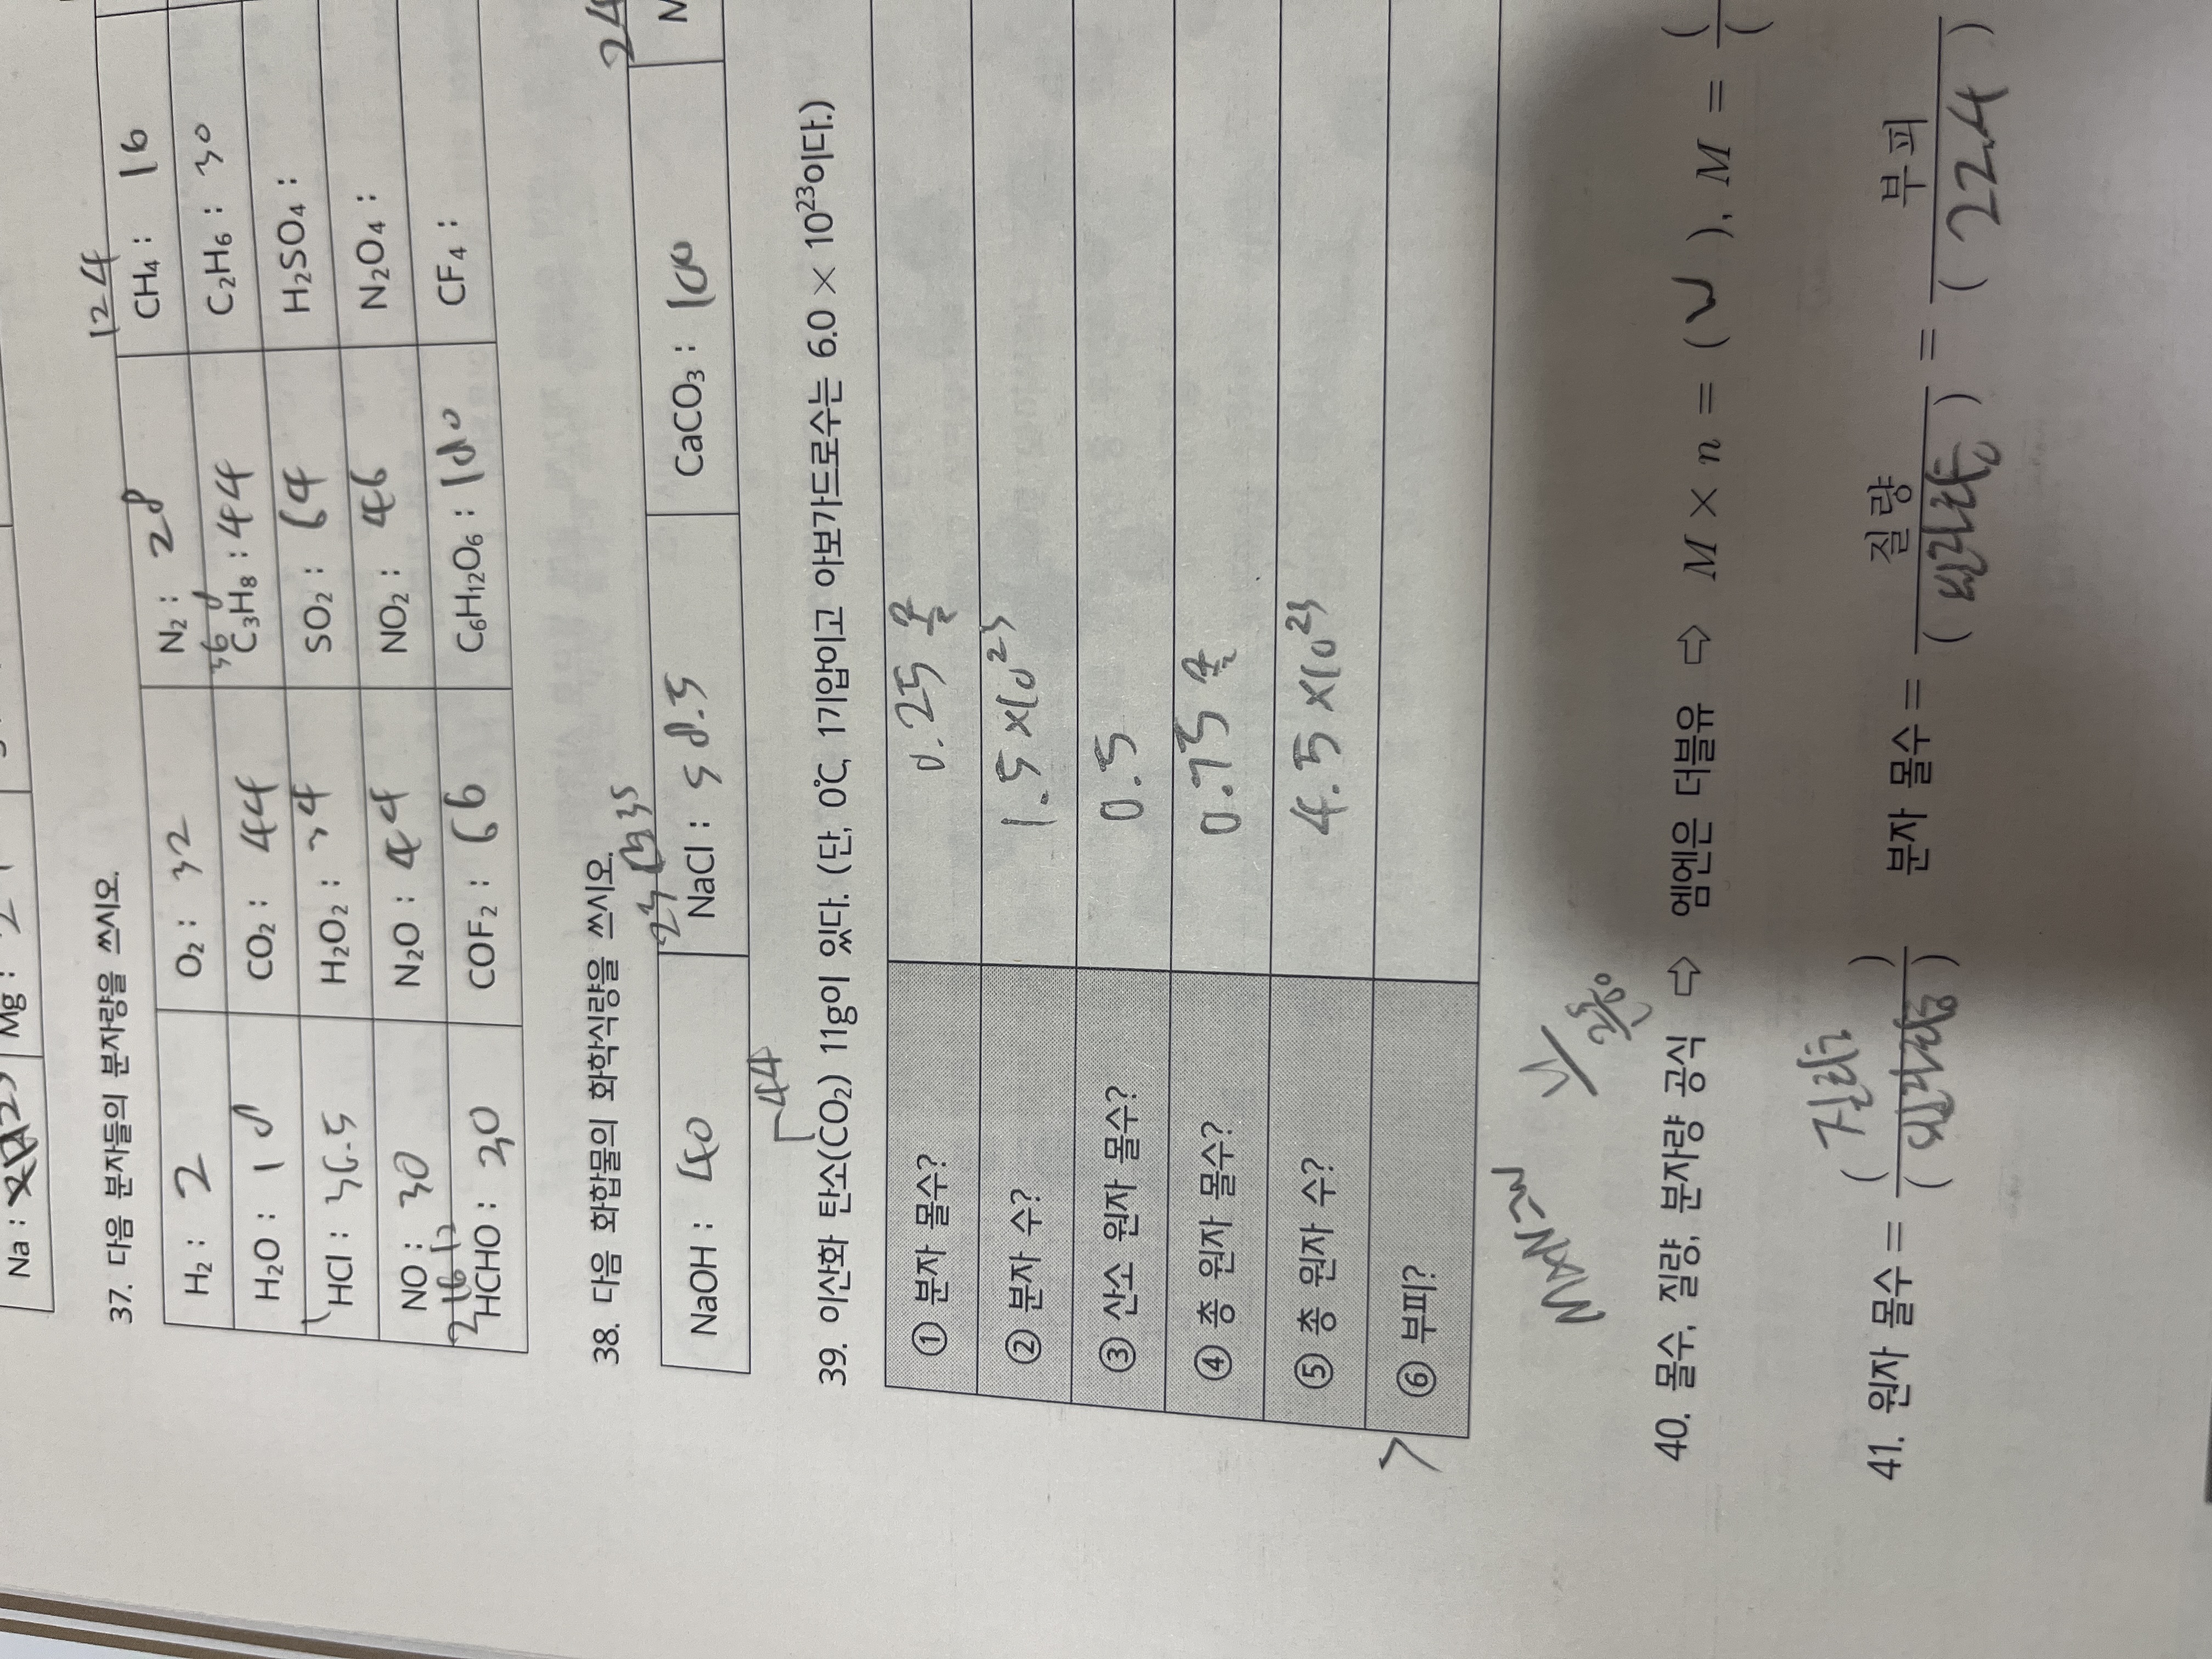 Na : 23 Mg : 2
37. 다음 분자들의 분자량을 쓰시오.
124
H₂ : 2 O₂ : 32 N₂ : 28 CH₄ : 16
36 8
H₂O : 18 CO₂ : 44 C₃H₈ : 44 C₂H₆ : 30
HCl : 36.5 H₂O₂ : 34 SO₂ : 64 H₂SO₄ :
NO : 30 N₂O : 44 NO₂ : 46 N₂O₄ :
2 16 12
HCHO : 30 COF₂ : 66 C₆H₁₂O₆ : 180 CF₄ :
38. 다음 화합물의 화학식량을 쓰시오.
23 35 24
NaOH : 40 NaCl : 58.5 CaCO₃ : 100 M
44
39. 이산화 탄소(CO₂) 11g이 있다. (단, 0℃, 1기압이고 아보가드로수는 6.0 × 10²³이다.)
① 분자 몰수? 0.25 몰
② 분자 수? 1.5 ×10²³
③ 산소 원자 몰수? 0.5
④ 총 원자 몰수? 0.75 몰
⑤ 총 원자 수? 4.5 ×10²³
⑥ 부피?
MN=W
40. 몰수, 질량, 분자량 공식 ⇨ 엠엔은 더블유 ⇨ M × n = ( W ), M = ( (
41. 원자 몰수 = ( 질량 ) / ( ) 분자 몰수 = 질량 / ( 분자량 ) = 부피 / ( 22.4 )